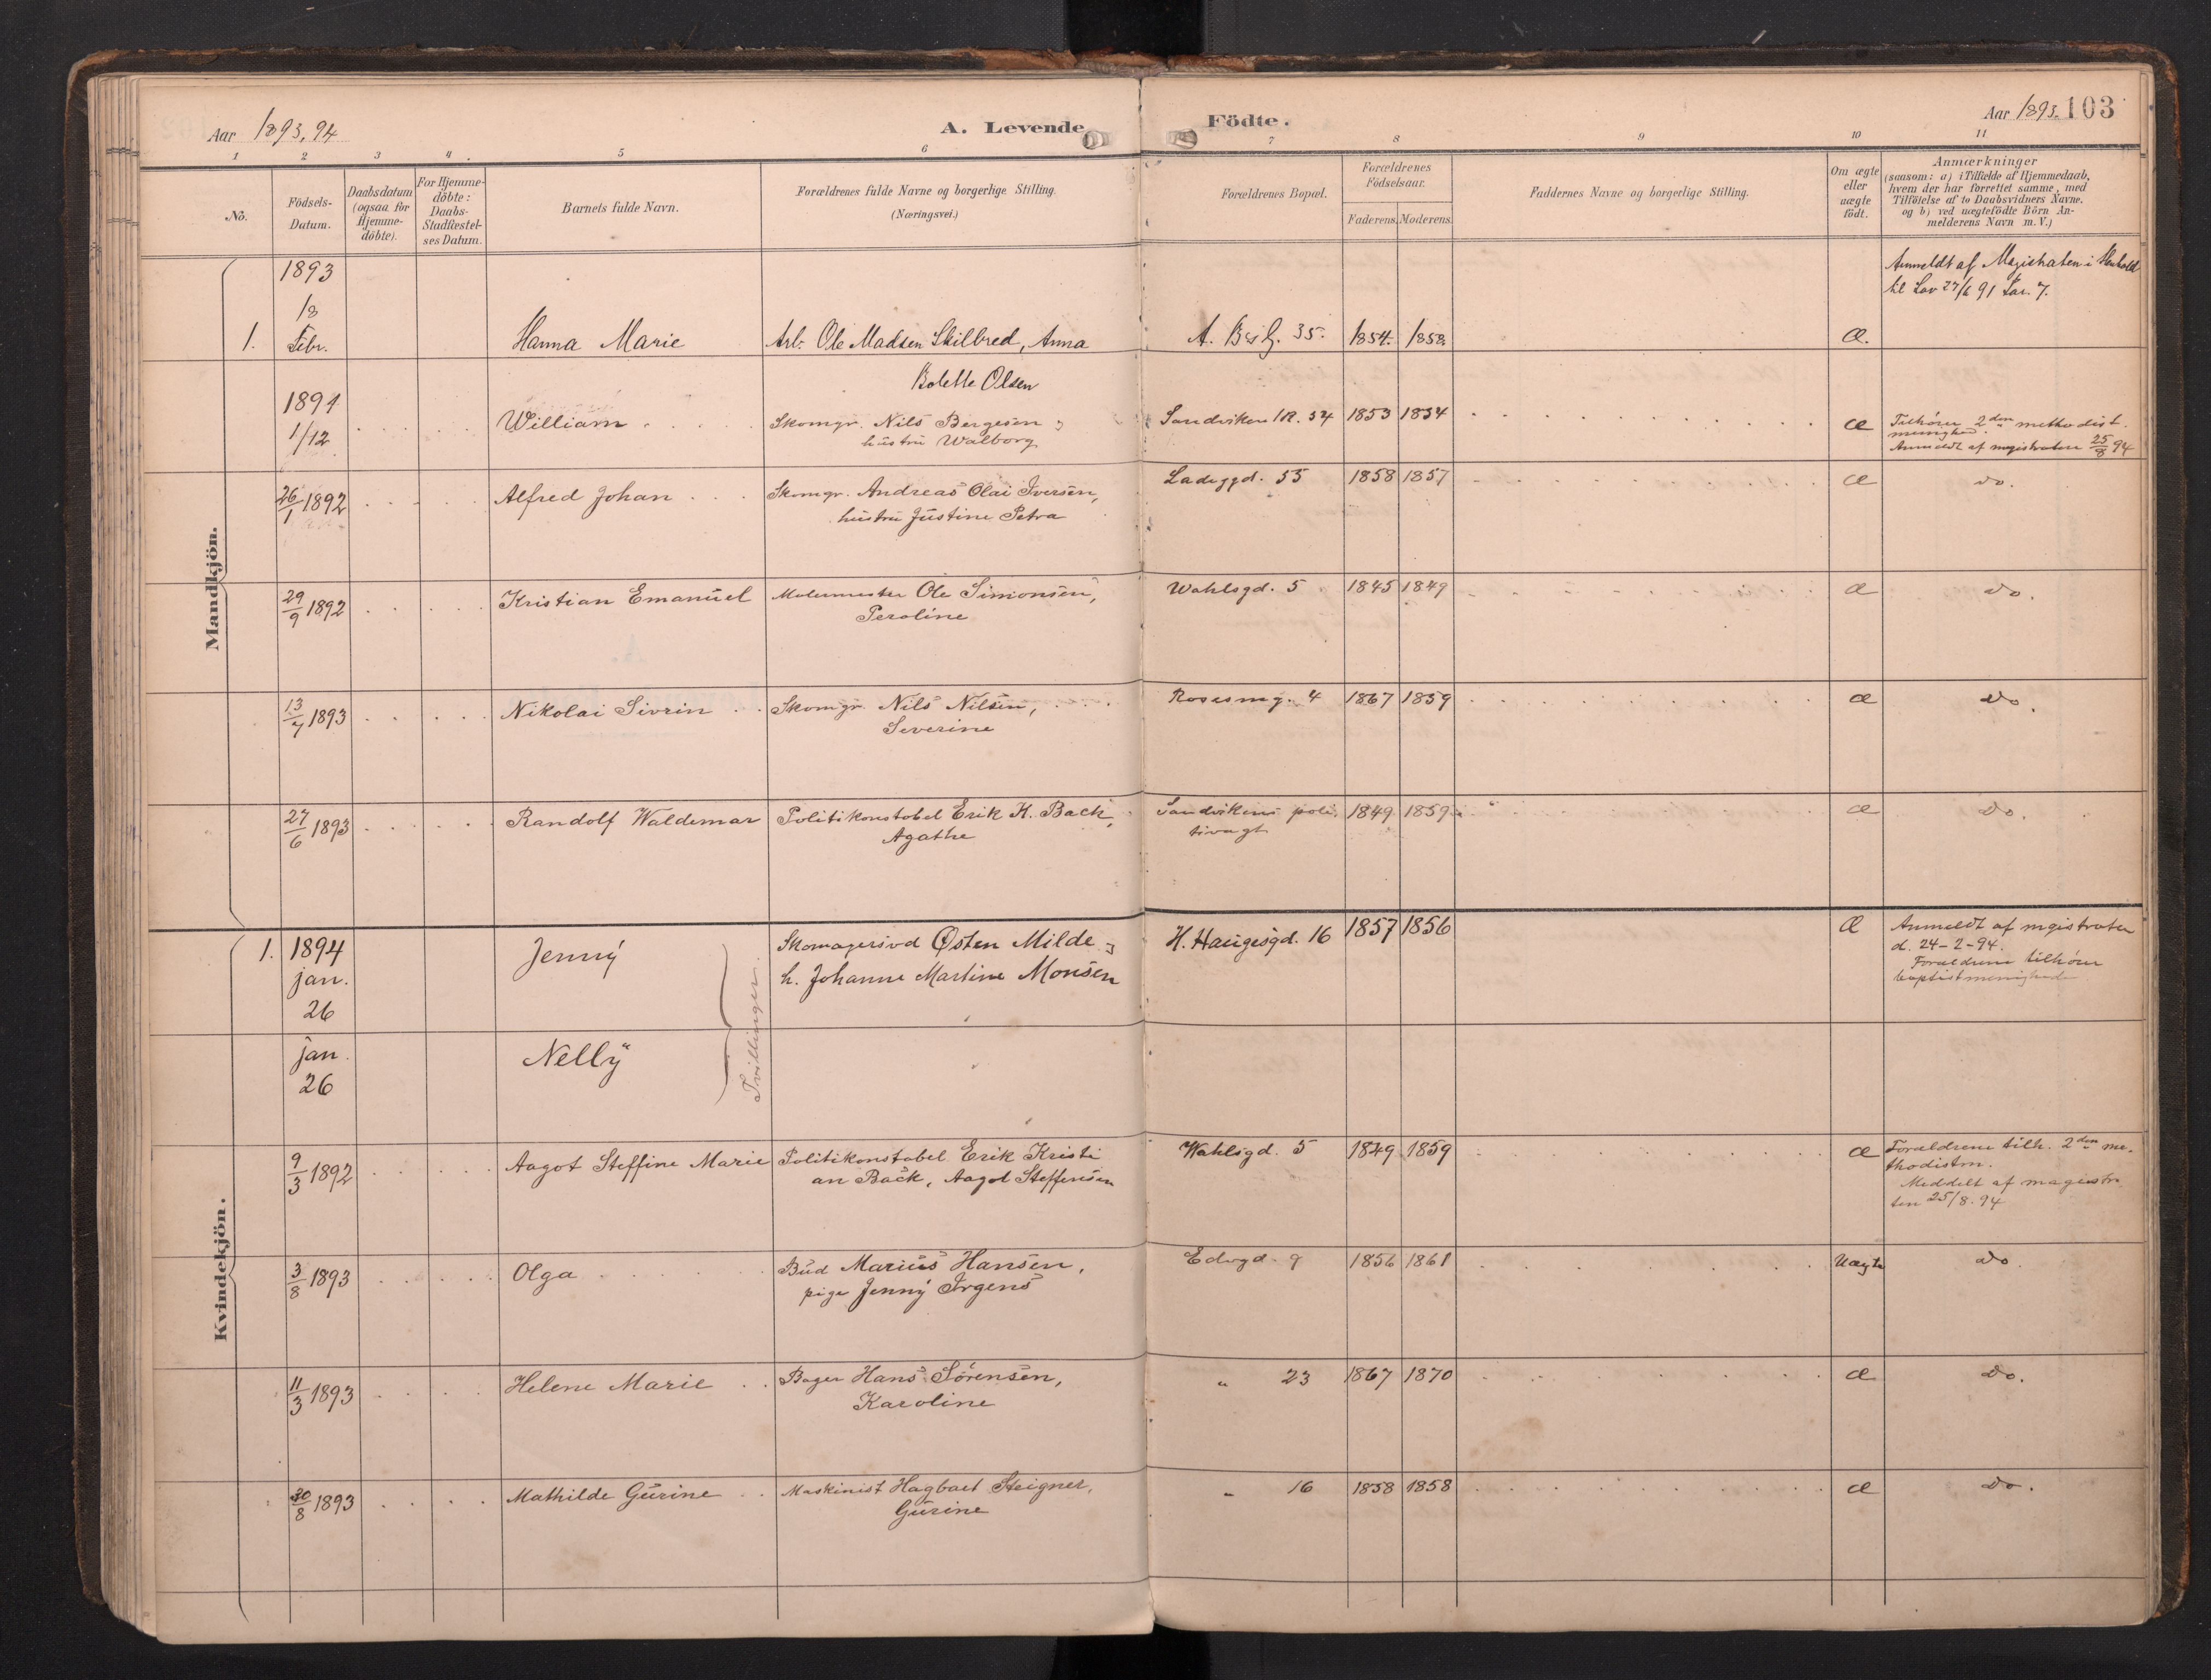 Aar 1893, 94
A. Levende
Födte.
Aar 1893. 103
1 2 3 4 5 6 7 8 9 10 11
No.
Födsels-
Datum.
Daabsdatum
(ogsaa for
Hjemme-
döbte).
For Hjemme-
döbte:
Daabs-
Stadfæstel-
ses Datum.
Barnets fulde Navn.
Forældrenes fulde Navne og borgerlige Stilling.
(Næringsvei.)
Forældrenes Bopæl.
Forældrenes
Födselsaar.
Faderens. Moderens.
Faddernes Navne og borgerlige Stilling.
Om ægte
eller
uægte
födt.
Anmærkninger
(saasom: a) i Tilfælde af Hjemmedaab,
hvem der har forrettet samme, med
Tilföielse af to Daabsvidners Navne.
og b) ved uægtefödte Börn An-
melderens Navn m. V.)
Mandkjön.
1893
18
1. Febr. Hanna Marie Arb. Ole Madsen Skilbred, Anna
Bolette Olsen
35. 1854. 1858. Æ.
Anmeldt af Magistraten i Henhold
til Lov 27/6 91 Par. 7.
1891
1/12 William Skomgr. Nils Bergesen og
hustru Walborg
Sandviken 1R. 54 1853 1854 Æ
Tilhörer 2den methodist.
menighed.
Anmeldt af magistraten 25/8 94
26/1 1892 Alfred Johan Skomgr. Andreas Olai Iversen,
hustru Justine Petra
Ladeggd. 55 1858 1857 Æ do.
29/9 1892 Kristian Emanuel Malermester Ole Simonsen,
Peroline
Wahlsgd. 5 1845 1849 Æ do.
13/7 1893 Nikolai Sivrin Skomgr. Nils Nilsen,
Severine
Rosesmg. 4 1867 1859 Æ do.
27/6 1893 Randolf Waldemar Politikonstabel Erik K. Back,
Agathe
Sandvikens poli
tivagt
1849 1859 Æ do.
Kvindekjön.
1. 1894
jan.
26
Jenny
Skomagersvd Østen Milde og
h. Johanne Martine Monsen
H. Haugesgd. 16 1857 1856 Æ
Anmeldt af mgistraten
d. 24-2-94.
Forældrene tilhörer
baptistmenigheden
jan.
26
Nelly
Tvillinger.
9/3 1892 Aagot Steffine Marie Politikonstabel Erik Kristi
an Back, Aagot Steffensen
Wahlsgd. 5 1849 1859 Æ
Forældrene tilh. 2den me-
thodistm.
Meddelt af magistra
ten 25/8. 94
3/8 1893 Olga Bud Marius Hansen,
pige Jenny Irgens
Edvgd. 9 1856 1861 Uægte do
11/3 1893 Helene Marie Bager Hans Sörensen,
Karoline
" 23 1867 1870 Æ do.
30/8 1893 Mathilde Gurine Maskinist Hagbart Steigner,
Gurine
" 16 1858 1858 Æ do.